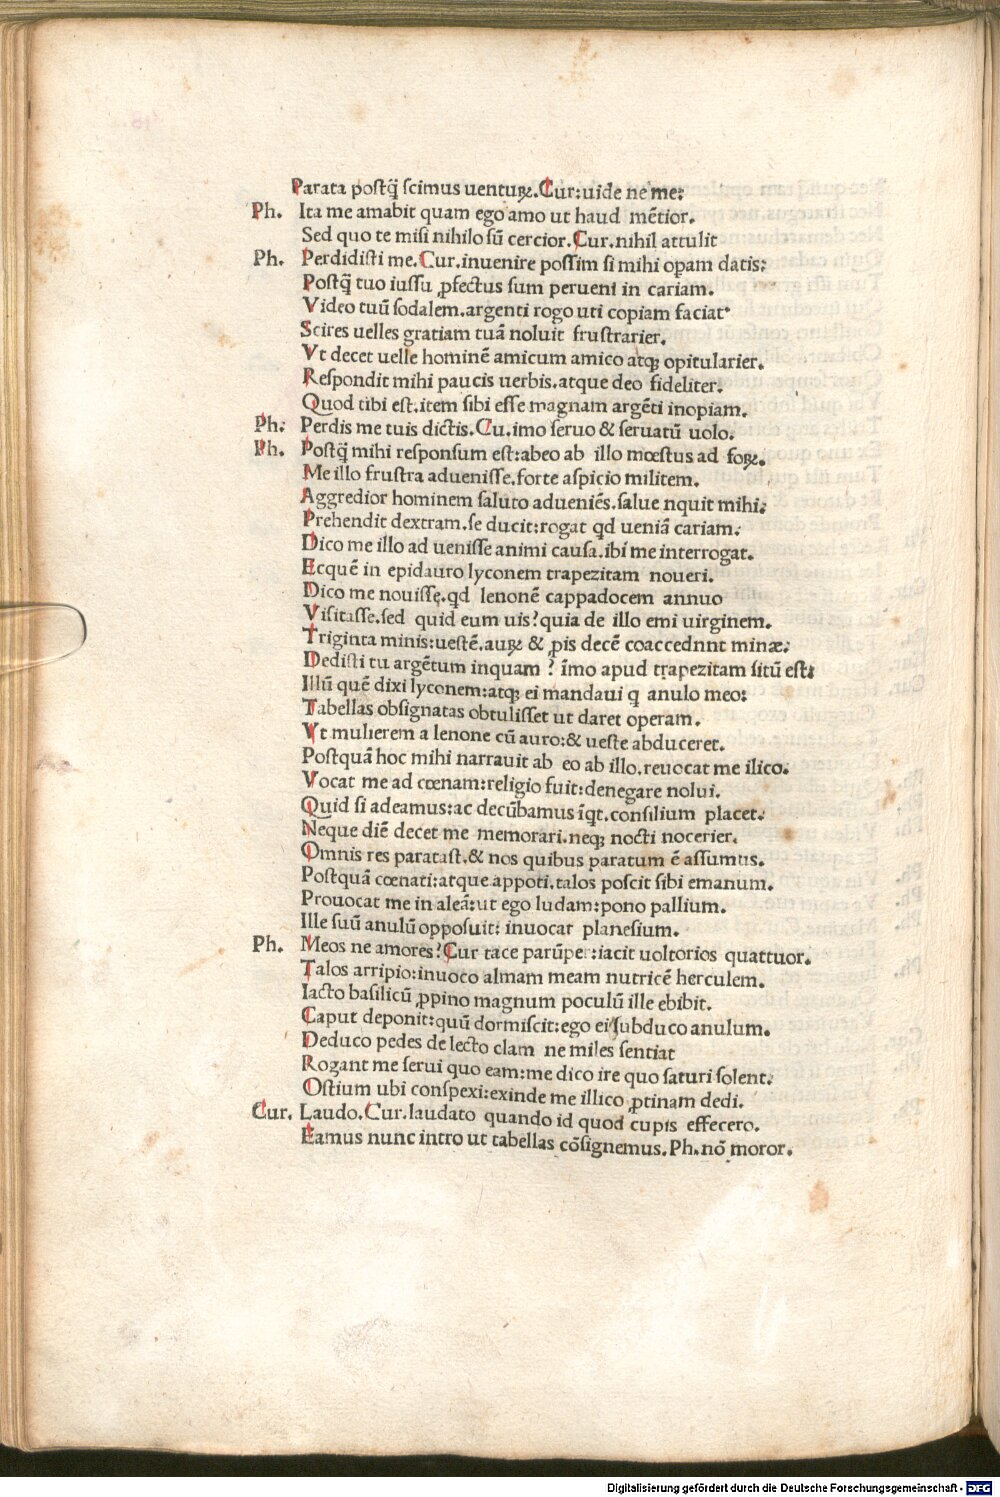 Parata postq̄ scimus uentuꝝ.Cur:uide ne me:
Ph. Ita me amabit quam ego amo ut haud mētior.
Sed quo te misi nihilo sū cercior.Cur.nihil attulit
Ph. Perdidisti me.Cur.inuenire possim si mihi opam datis:
Postq̄ tuo iussu ꝓfectus sum perueni in cariam.
Video tuū sodalem.argenti rogo uti copiam faciat
Scires uelles gratiam tuā noluit frustrarier.
Vt decet uelle hominē amicum amico atqꝫ opitularier.
Respondit mihi paucis uerbis.atque deo fideliter.
Quod tibi est.item sibi esse magnam argēti inopiam.
Ph: Perdis me tuis dictis.Cu.imo seruo & seruatū uolo.
Ph. Postq̄ mihi responsum est:abeo ab illo mœstus ad foꝝ.
Me illo frustra aduenisse.forte aspicio militem.
Aggredior hominem saluto adueniēs.salue nquit mihi:
Prehendit dextram.se ducit:rogat qd ueniā cariam:
Dico me illo ad uenisse animi causa.ibi me interrogat.
Ecquē in epidauro lyconem trapezitam noueri.
Dico me nouisse.qd lenonē cappadocem annuo
Visitasse.sed quid eum uis?quia de illo emi uirginem.
Triginta minis:uestē.auꝝ & ꝓis decē coaccednnt minæ:
Dedisti tu argētum inquam ? īmo apud trapezitam sitū est:
Illū quē dixi lyconem:atqꝫ ei mandaui q anulo meo:
Tabellas obsignatas obtulisset ut daret operam.
Vt mulierem a lenone cū auro:& ueste abduceret.
Postquā hoc mihi narrauit ab eo ab illo.reuocat me ilico.
Vocat me ad cœnam:religio fuit:denegare nolui.
Quid si adeamus:ac decūbamus īqt.consilium placet:
Neque diē decet me memorari.neqꝫ nocti nocerier.
Omnis res paratast.& nos quibus paratum ē assumus.
Postquā cœnati:atque appoti.talos poscit sibi emanum.
Prouocat me in aleā:ut ego ludam:pono pallium.
Ille suū anulū opposuit: inuocat planesium.
Ph. Meos ne amores?Cur tace parūper:iacit uoltorios quattuor.
Talos arripio:inuoco almam meam nutricē herculem.
Iacto basilicū ꝓpino magnum poculū ille ebibit.
Caput deponit:quū dormiscit:ego ei subduco anulum.
Deduco pedes de lecto clam ne miles sentiat
Rogant me serui quo eam:me dico ire quo saturi solent:
Ostium ubi conspexi:exinde me illico ꝓtinam dedi.
Cur. Laudo.Cur.laudato quando id quod cupis effecero.
Eamus nunc intro ut tabellas cōsignemus.Ph.nō moror.
Digitalisierung gefördert durch die Deutsche Forschungsgemeinschaft - DFG